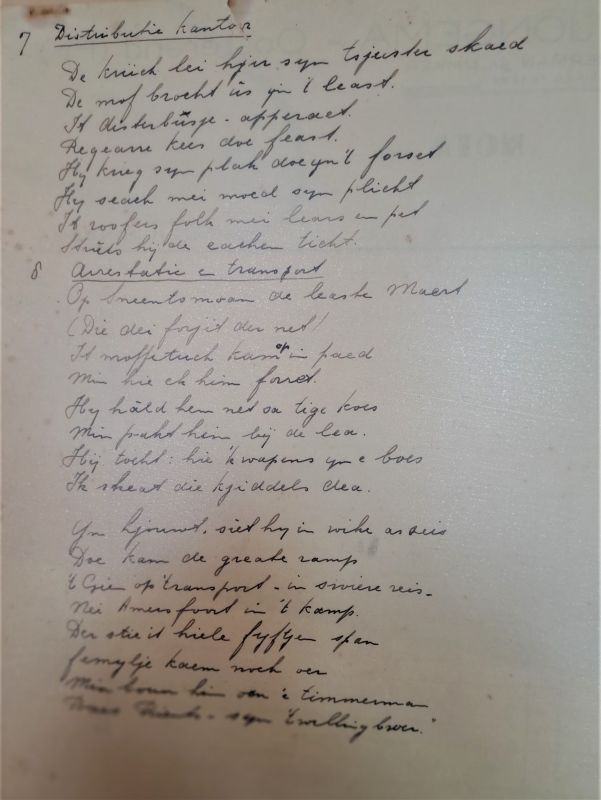 7 Distributie kantoor
De kriich lei hjir syn tsjuster skaed
De mof brocht ús yn 't least.
It disterbúsje-apperaet.
Regearre Kees doe feast.
Hy krieg syn plak doe yn 't forset
Hy seach mei moed syn plicht
It roofers folk mei lears en pet
Struts hij de eachen ticht.
8 Arrestatie en transport
Op Sneontsmoarn de leaste Maert
(Die dei forgit der net)
It moffetuch kam op in paed
Min hie ek him forret.
Hy hâld hem net sa tige koes
Min pakt him bij de lea.
Hij tocht: hie 'k wapens yn e boes
Ik skeat die kjiddels dea.
Yn Ljouwt. siet hy in wike as seis
Doe kam de greate ramp
't Gien op 't transport - in swiere reis -
Nei Amersfoort in 't kamp.
Der stie it hiele fyftjen span
famylje kaem noch oer
Min boun him oan 'e timmerman
syn twillingbroer."